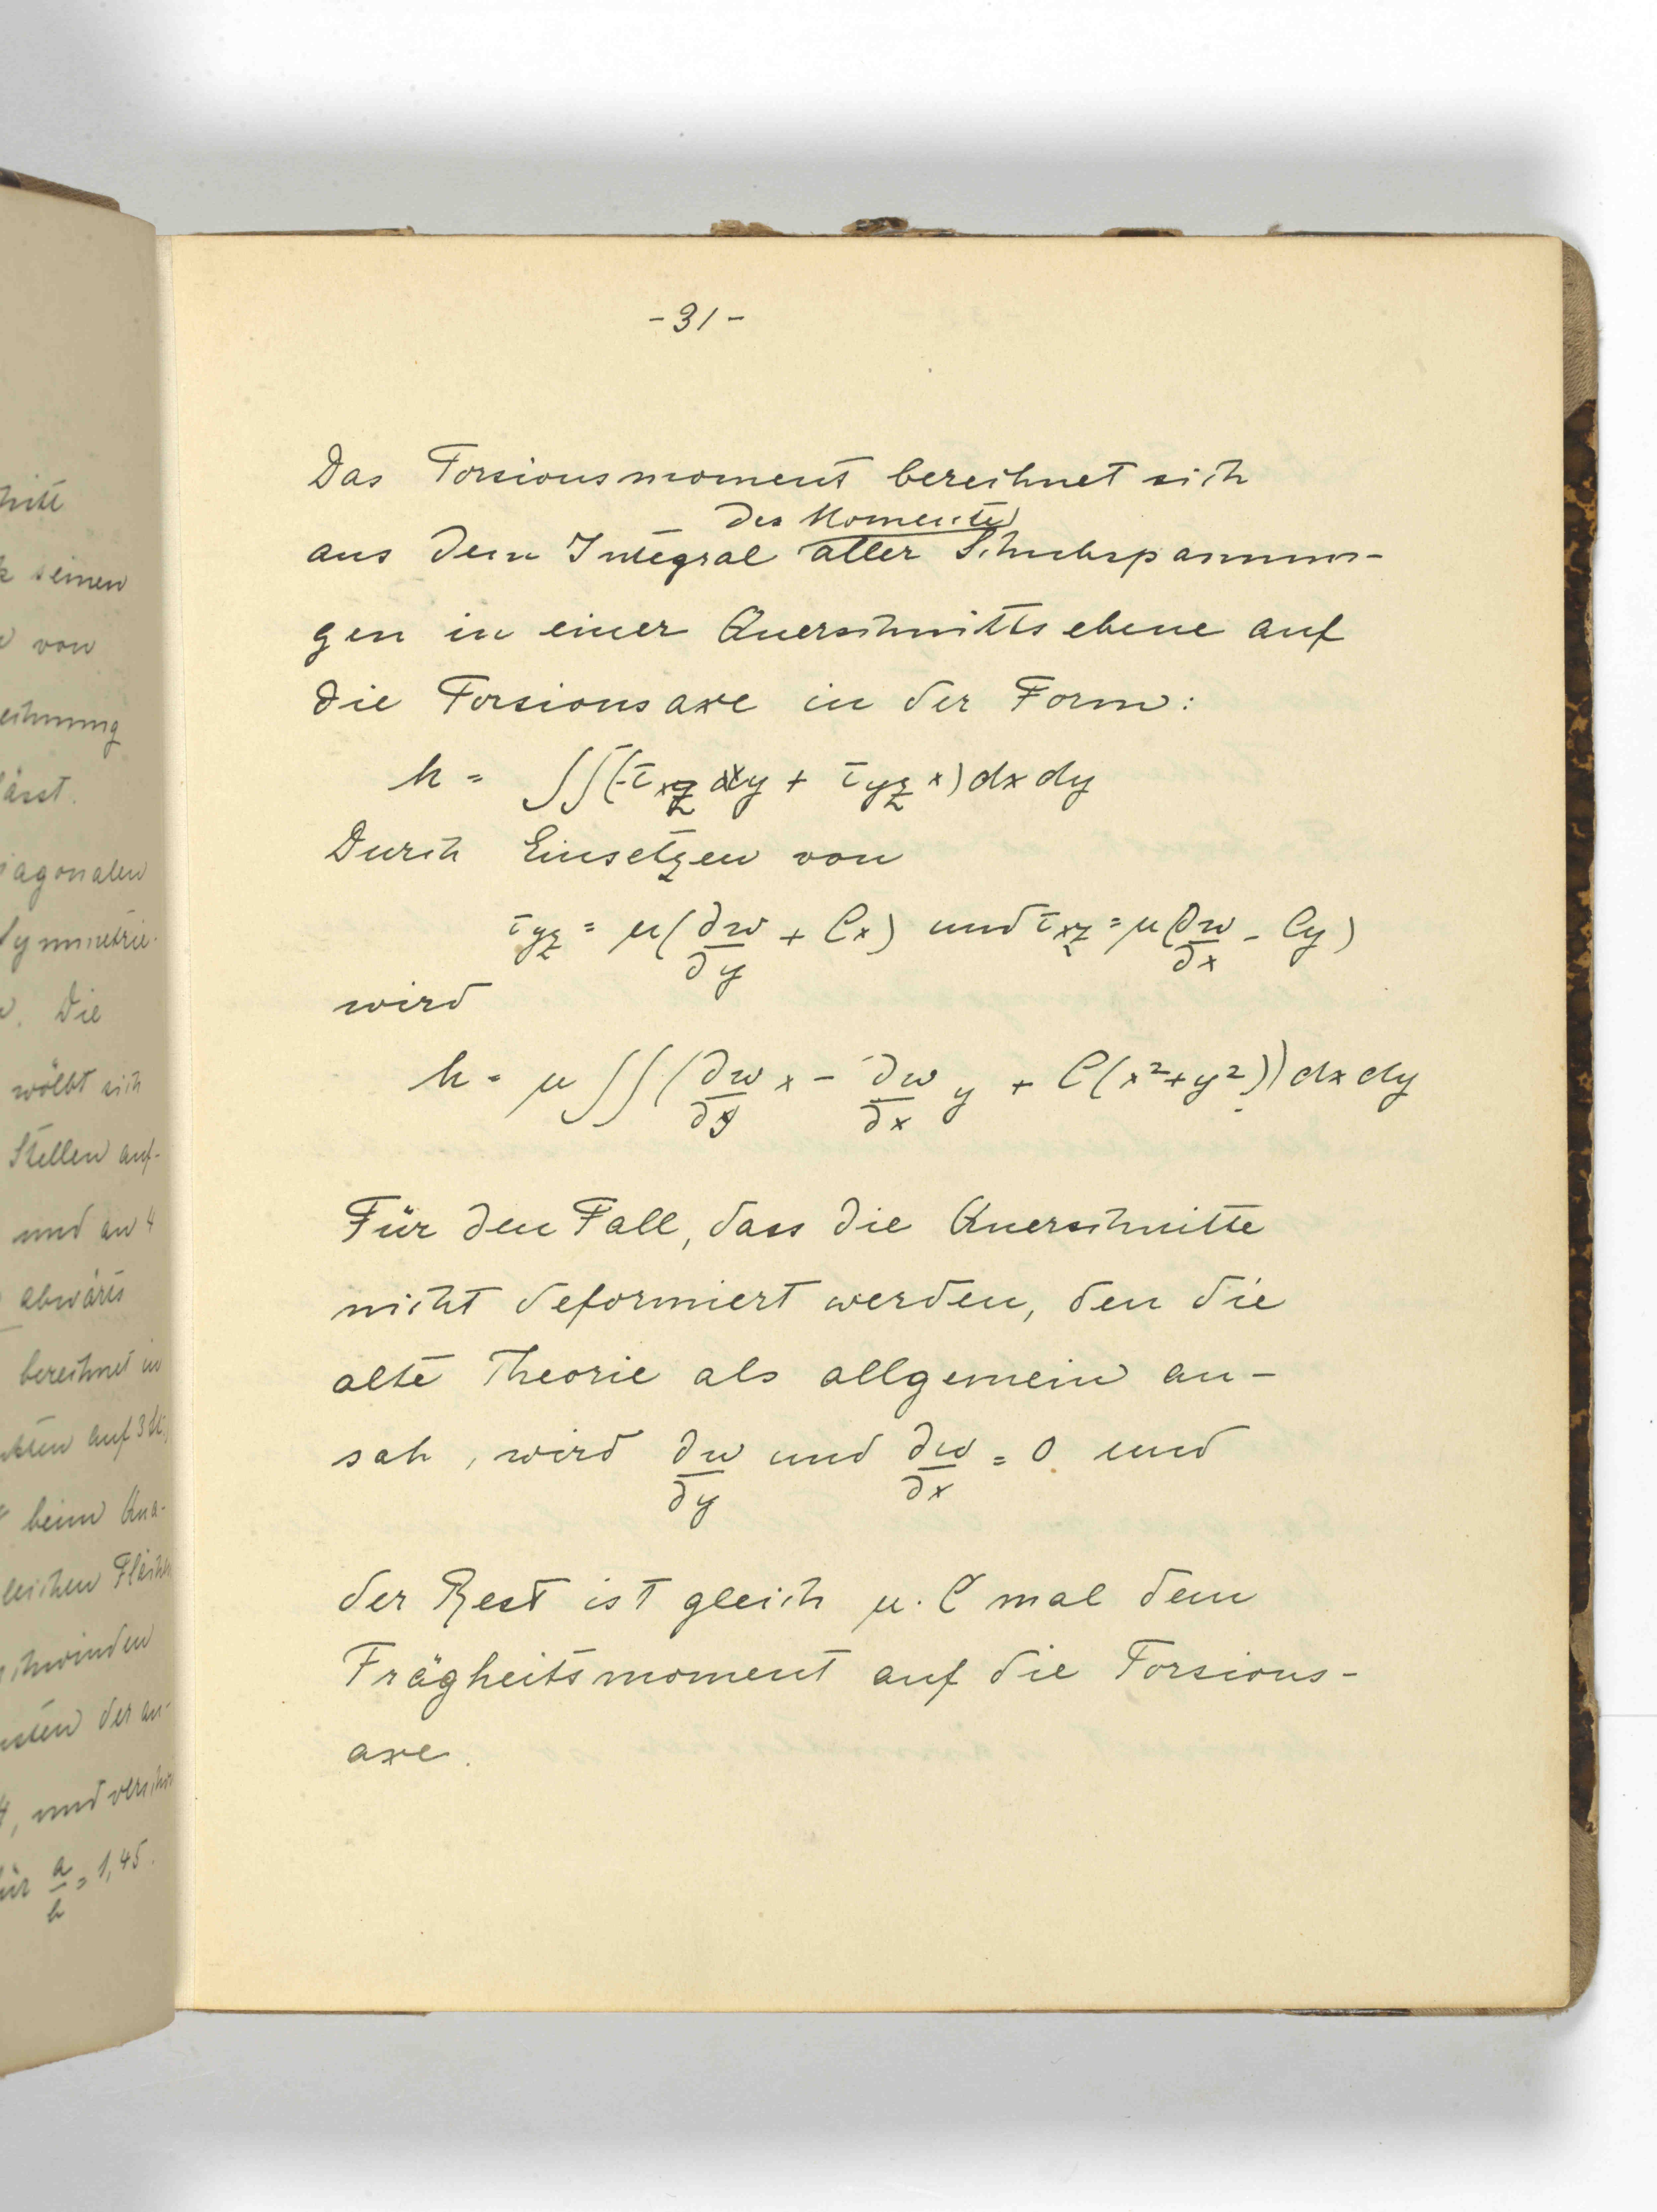 hitte
k seinen
von
echnung
ässt.
iagonalen
Symmetrie-
. Die
wölbt sich
Stellen auf-
und an 4
abwärts
berechnet in
kten auf 3 St.
beim Qua-
leichen Fläch
schwinden
nsten der an-
, und versch
ür a/b = 1,45.
- 31 -
Das Torsionsmoment berechnet sich
der Momente
aus dem Integral aller Schubspannun-
gen in einer Querschnittsebene auf
die Torsionsaxe in der Form:
M = ∫∫(-τxz y + τyz x) dx dy
Durch Einsetzen von
τyz = μ(∂w/∂y + Cx) und τxz = μ(∂w/∂x - Cy)
wird
M = μ ∫∫(∂w/∂y x - ∂w/∂x y + C(x²+y²)) dx dy
Für den Fall, dass die Querschnitte
nicht deformiert werden, den die
alte Theorie als allgemein an-
sah, wird ∂w/∂y und ∂w/∂x = 0 und
der Rest ist gleich μ. C mal dem
Trägheitsmoment auf die Torsions-
axe.